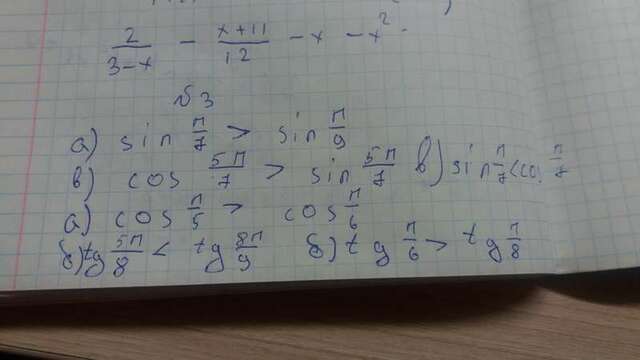 2/(3-x) - (x+11)/12 - x - x².
№3
а) sin π/7 > sin π/9
б) cos 5π/7 > sin 5π/7 в) sin π/7 < cos π/7
а) cos π/5 > cos π/6
б) tg 5π/8 < tg 8π/9 в) tg π/6 > tg π/8